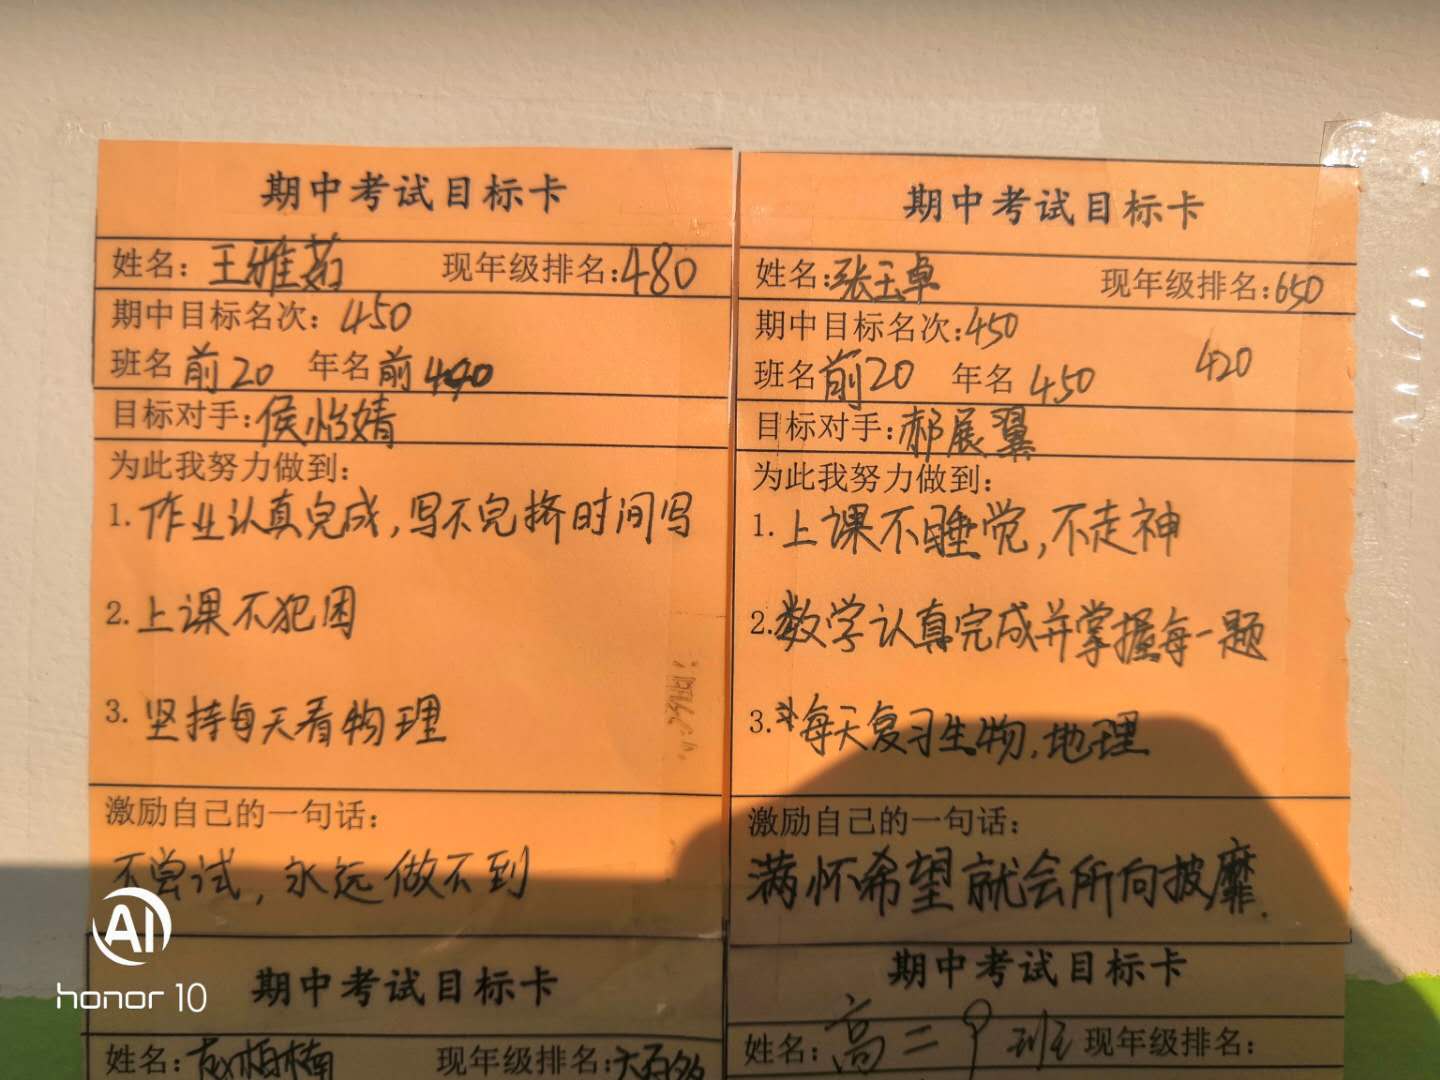 期中考试目标卡
姓名：王雅茹 现年级排名：480
期中目标名次：450
班名 前20 年名 前400
目标对手：侯怡婧
为此我努力做到：
1. 作业认真完成，写不完挤时间写
2. 上课不犯困
3. 坚持每天看物理
激励自己的一句话：
不尝试，永远做不到
期中考试目标卡
姓名：张玉卓 现年级排名：650
期中目标名次：450
420
班名 前20 年名 450
目标对手：郝展翼
为此我努力做到：
1. 上课不睡觉，不走神
2. 数学认真完成并掌握每一题
3. 每天复习生物，地理
激励自己的一句话：
满怀希望就会所向披靡.
期中考试目标卡
姓名： 现年级排名：
期中考试目标卡
姓名：高二9班 现年级排名：
AI
honor 10